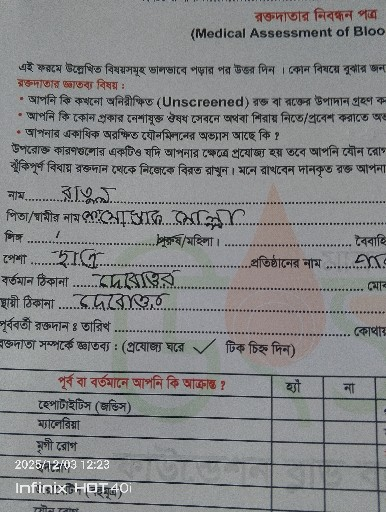 রক্তদাতার নিবন্ধন পত্র
(Medical Assessment of Bloo
এই ফরমে উল্লেখিত বিষয়সমূহ ভালভাবে পড়ার পর উত্তর দিন । কোন বিষয়ে বুঝার জন্য
রক্তদাতার জ্ঞাতব্য বিষয় :
• আপনি কি কখনো অনিরীক্ষিত (Unscreened) রক্ত বা রক্তের উপাদান গ্রহণ ক
• আপনি কি কোন প্রকার নেশাযুক্ত ঔষধ সেবনে অথবা শিরায় নিতে/প্রবেশ করাতে অভ
• আপনার একাধিক অরক্ষিত যৌনমিলনের অভ্যাস আছে কি ?
উপরোক্ত কারণগুলোর একটিও যদি আপনার ক্ষেত্রে প্রযোজ্য হয় তবে আপনি যৌন রোগ
ঝুঁকিপূর্ণ বিধায় রক্তদান থেকে নিজেকে বিরত রাখুন। মনে রাখবেন দানকৃত রক্ত আপনা
নাম রাতুল
পিতা/স্বামীর নাম মোল্লা
লিঙ্গ পুরুষ/মহিলা। বৈবাহি
পেশা ছাত্র প্রতিষ্ঠানের নাম
বর্তমান ঠিকানা মোব
স্থায়ী ঠিকানা
পূর্ববর্তী রক্তদান ঃ তারিখ কোথায়
রক্তদাতা সম্পর্কে জ্ঞাতব্য : (প্রযোজ্য ঘরে ✓ টিক চিহ্ন দিন)
পূর্ব বা বর্তমানে আপনি কি আক্রান্ত ? হ্যাঁ না
হেপাটাইটিস (জন্ডিস)
ম্যালেরিয়া
মৃগী রোগ
2025/12/03 12:23
Infinix HOT 40i
যৌন রোগ